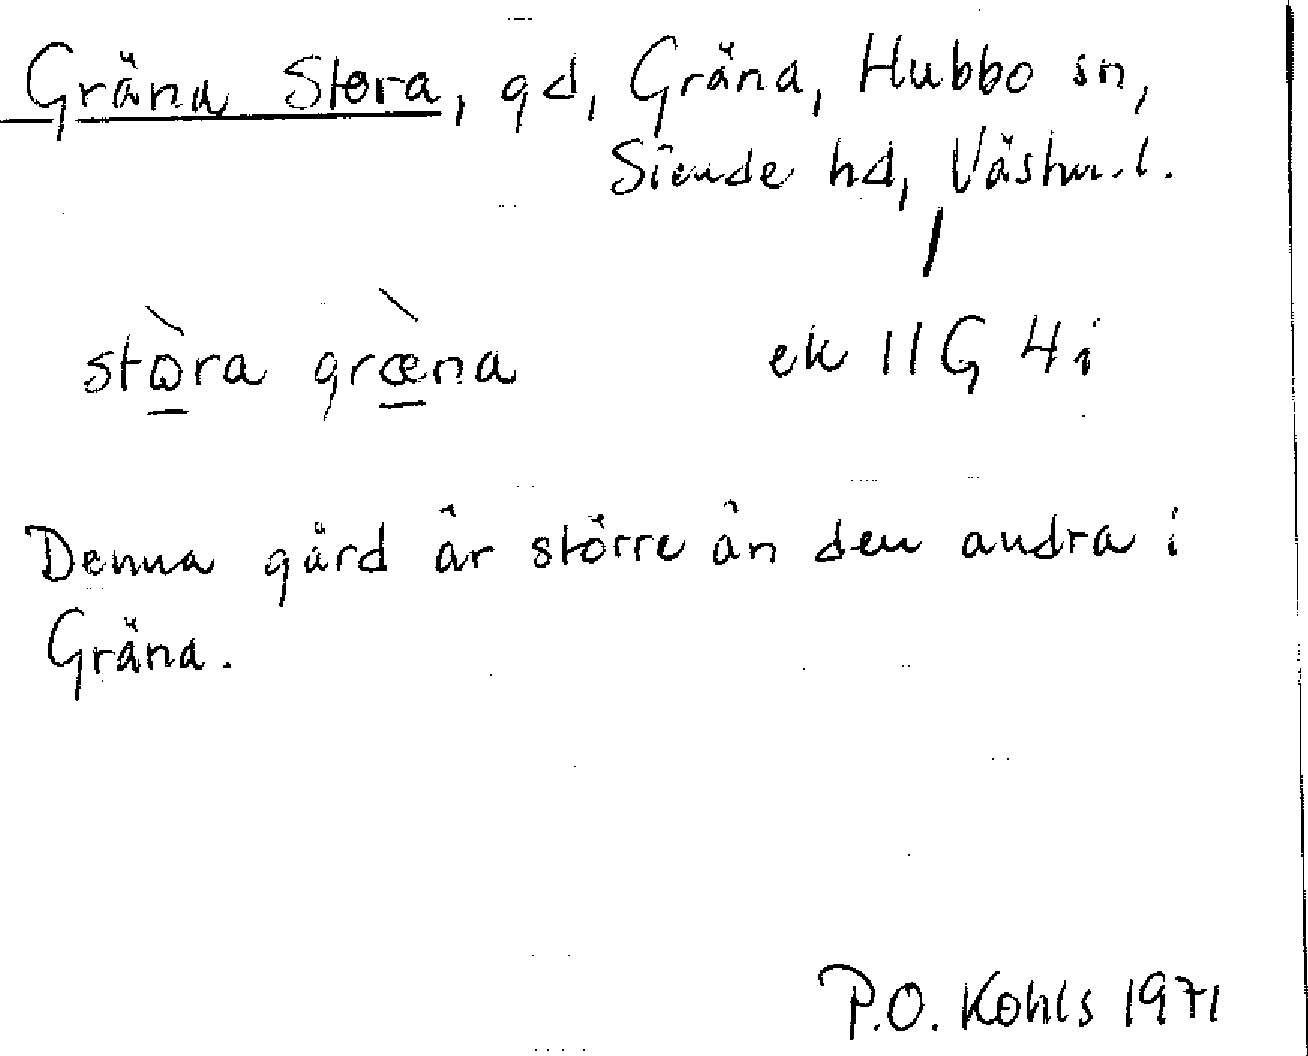 Gräna Stora, gd, Gräna, Hubbo sn,
Siende hd, Västm.l.
stò̱ra græ̱̀na ek 11G 4i
Denna gård är större än den andra i
Gräna.
P.O. Kohls 1971